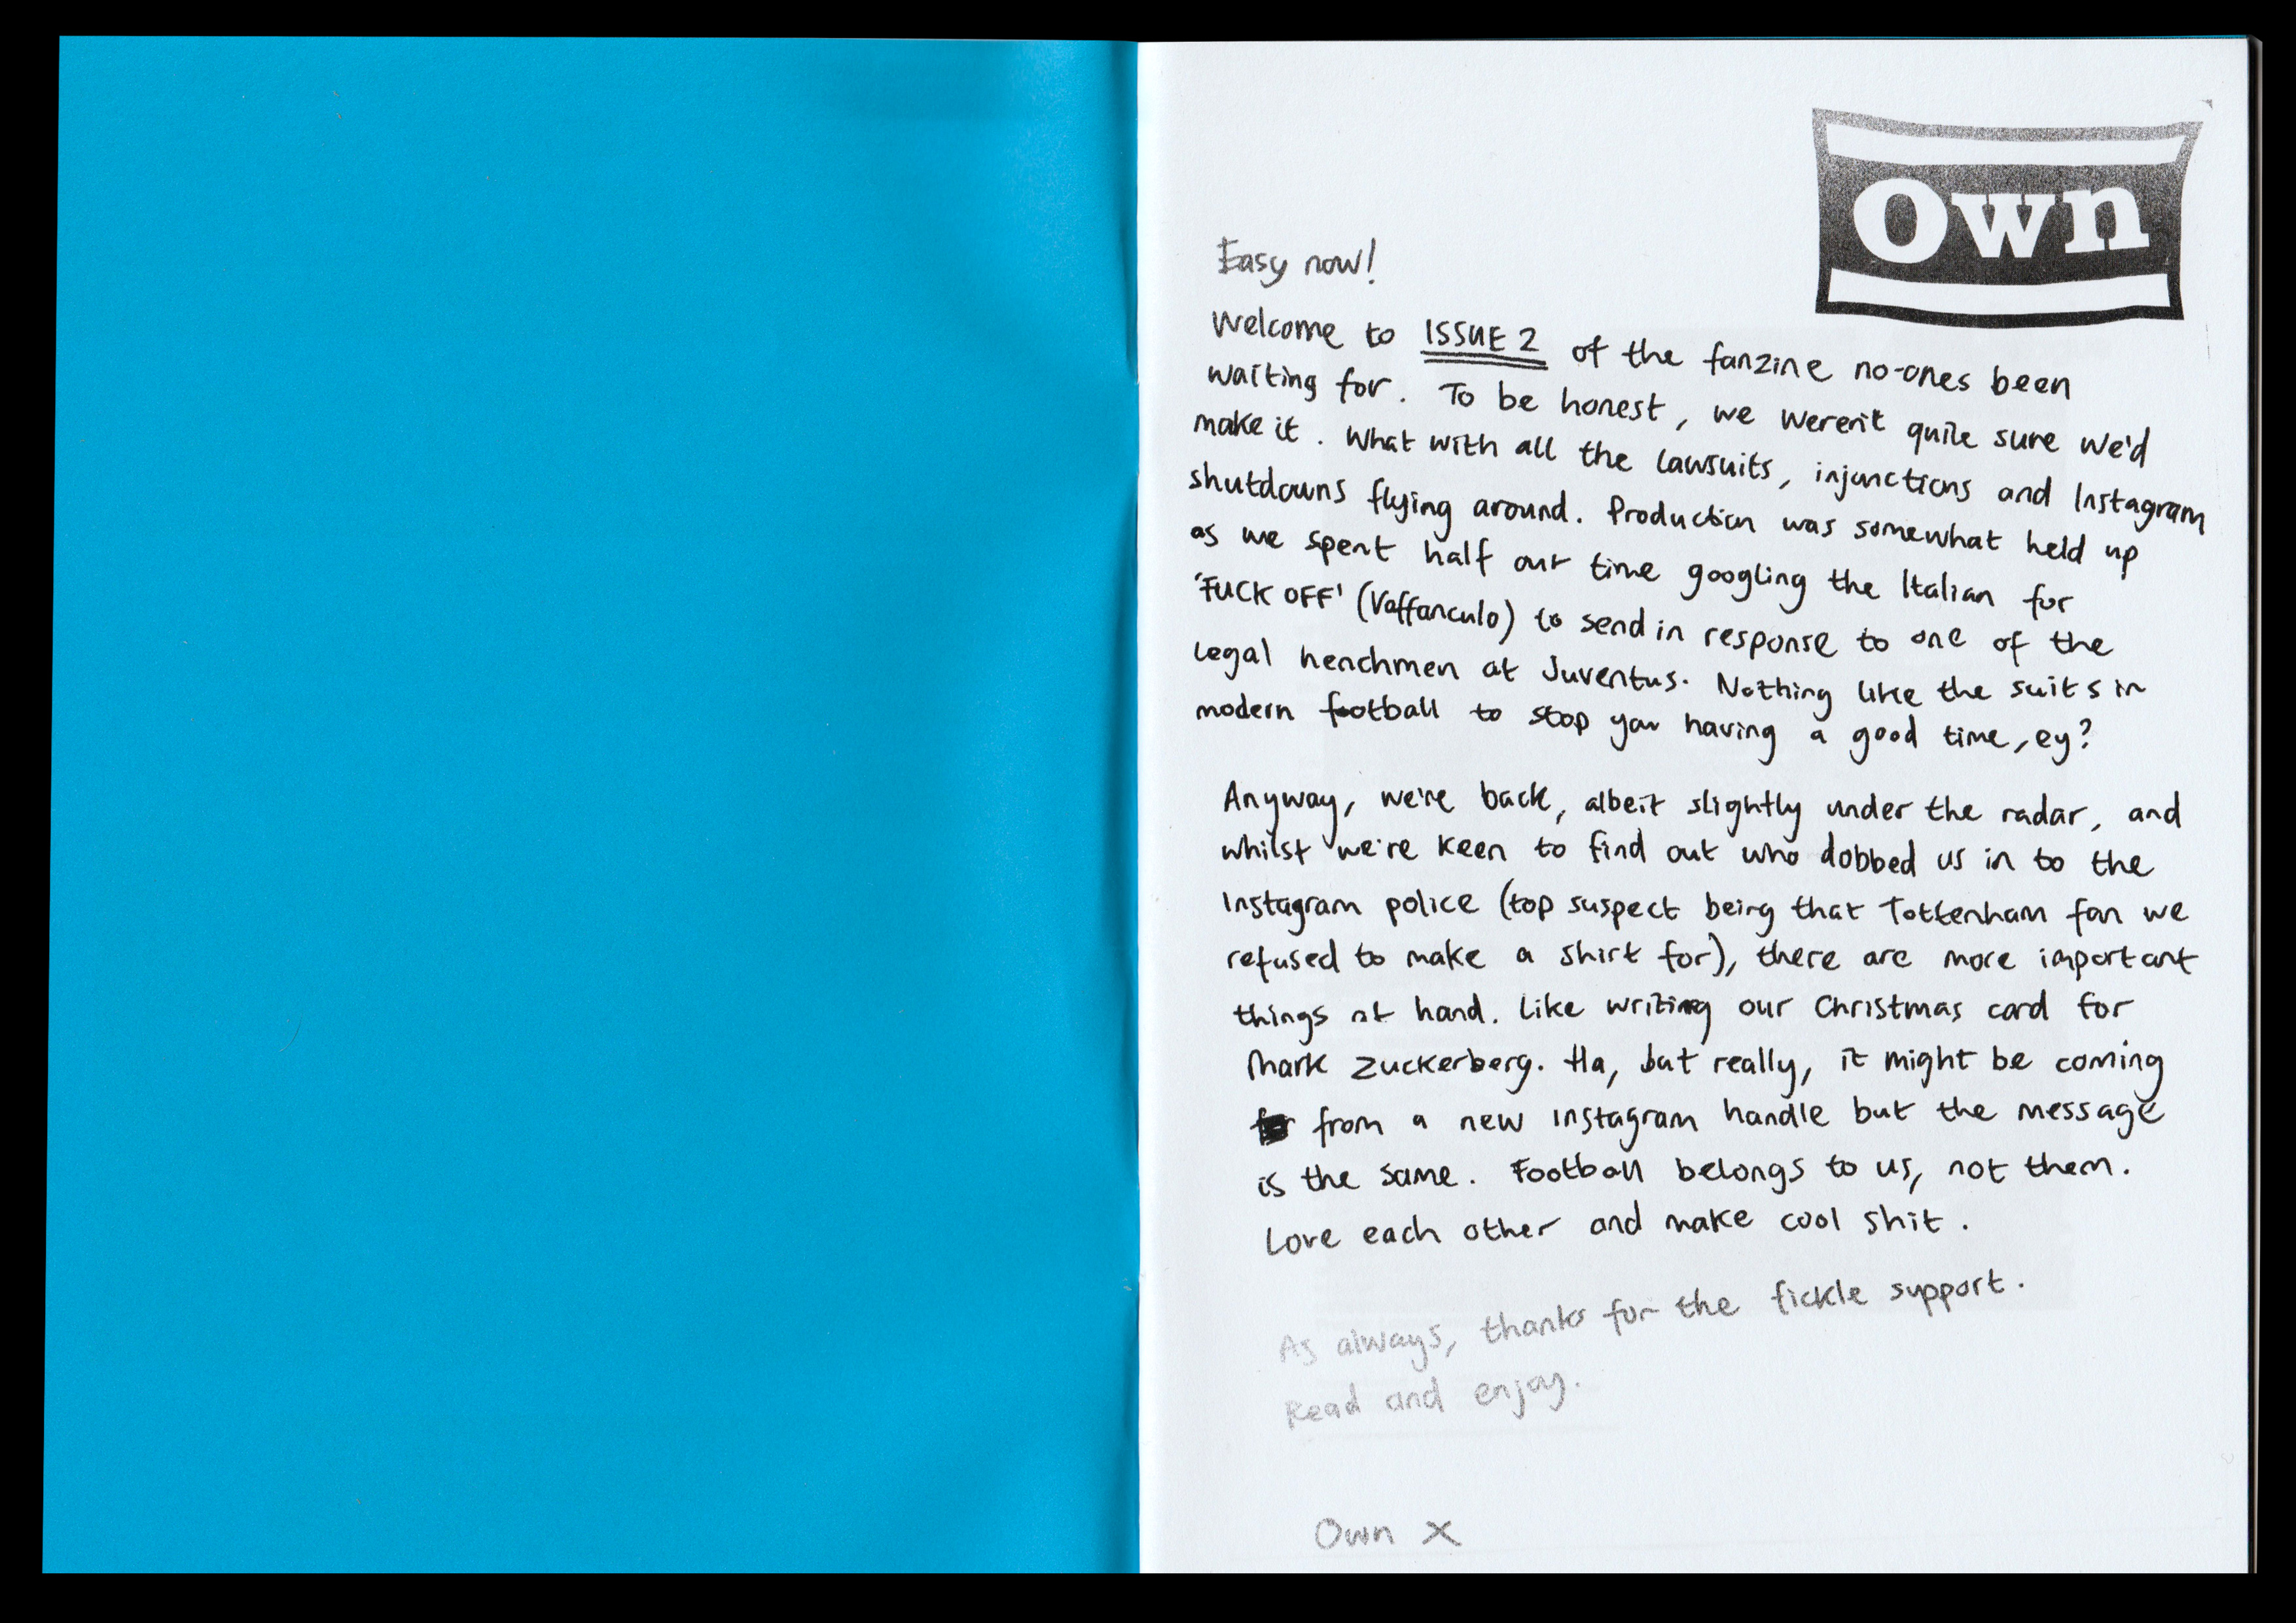 Own
Easy now!
Welcome to ISSUE 2 of the fanzine no-ones been
waiting for. To be honest, we weren't quite sure we'd
make it. What with all the lawsuits, injunctions and Instagram
shutdowns flying around. Production was somewhat held up
as we spent half our time googling the Italian for
'FUCK OFF' (Vaffanculo) to send in response to one of the
legal henchmen at Juventus. Nothing like the suits in
modern football to stop you having a good time, ey?
Anyway, we're back, albeit slightly under the radar, and
whilst we're keen to find out who dobbed us in to the
Instagram police (top suspect being that Tottenham fan we
refused to make a shirt for), there are more important
things at hand. Like writing our Christmas card for
Mark Zuckerberg. Ha, but really, it might be coming
from a new instagram handle but the message
is the same. Football belongs to us, not them.
Love each other and make cool shit.
As always, thanks for the fickle support.
Read and enjoy.
Own X